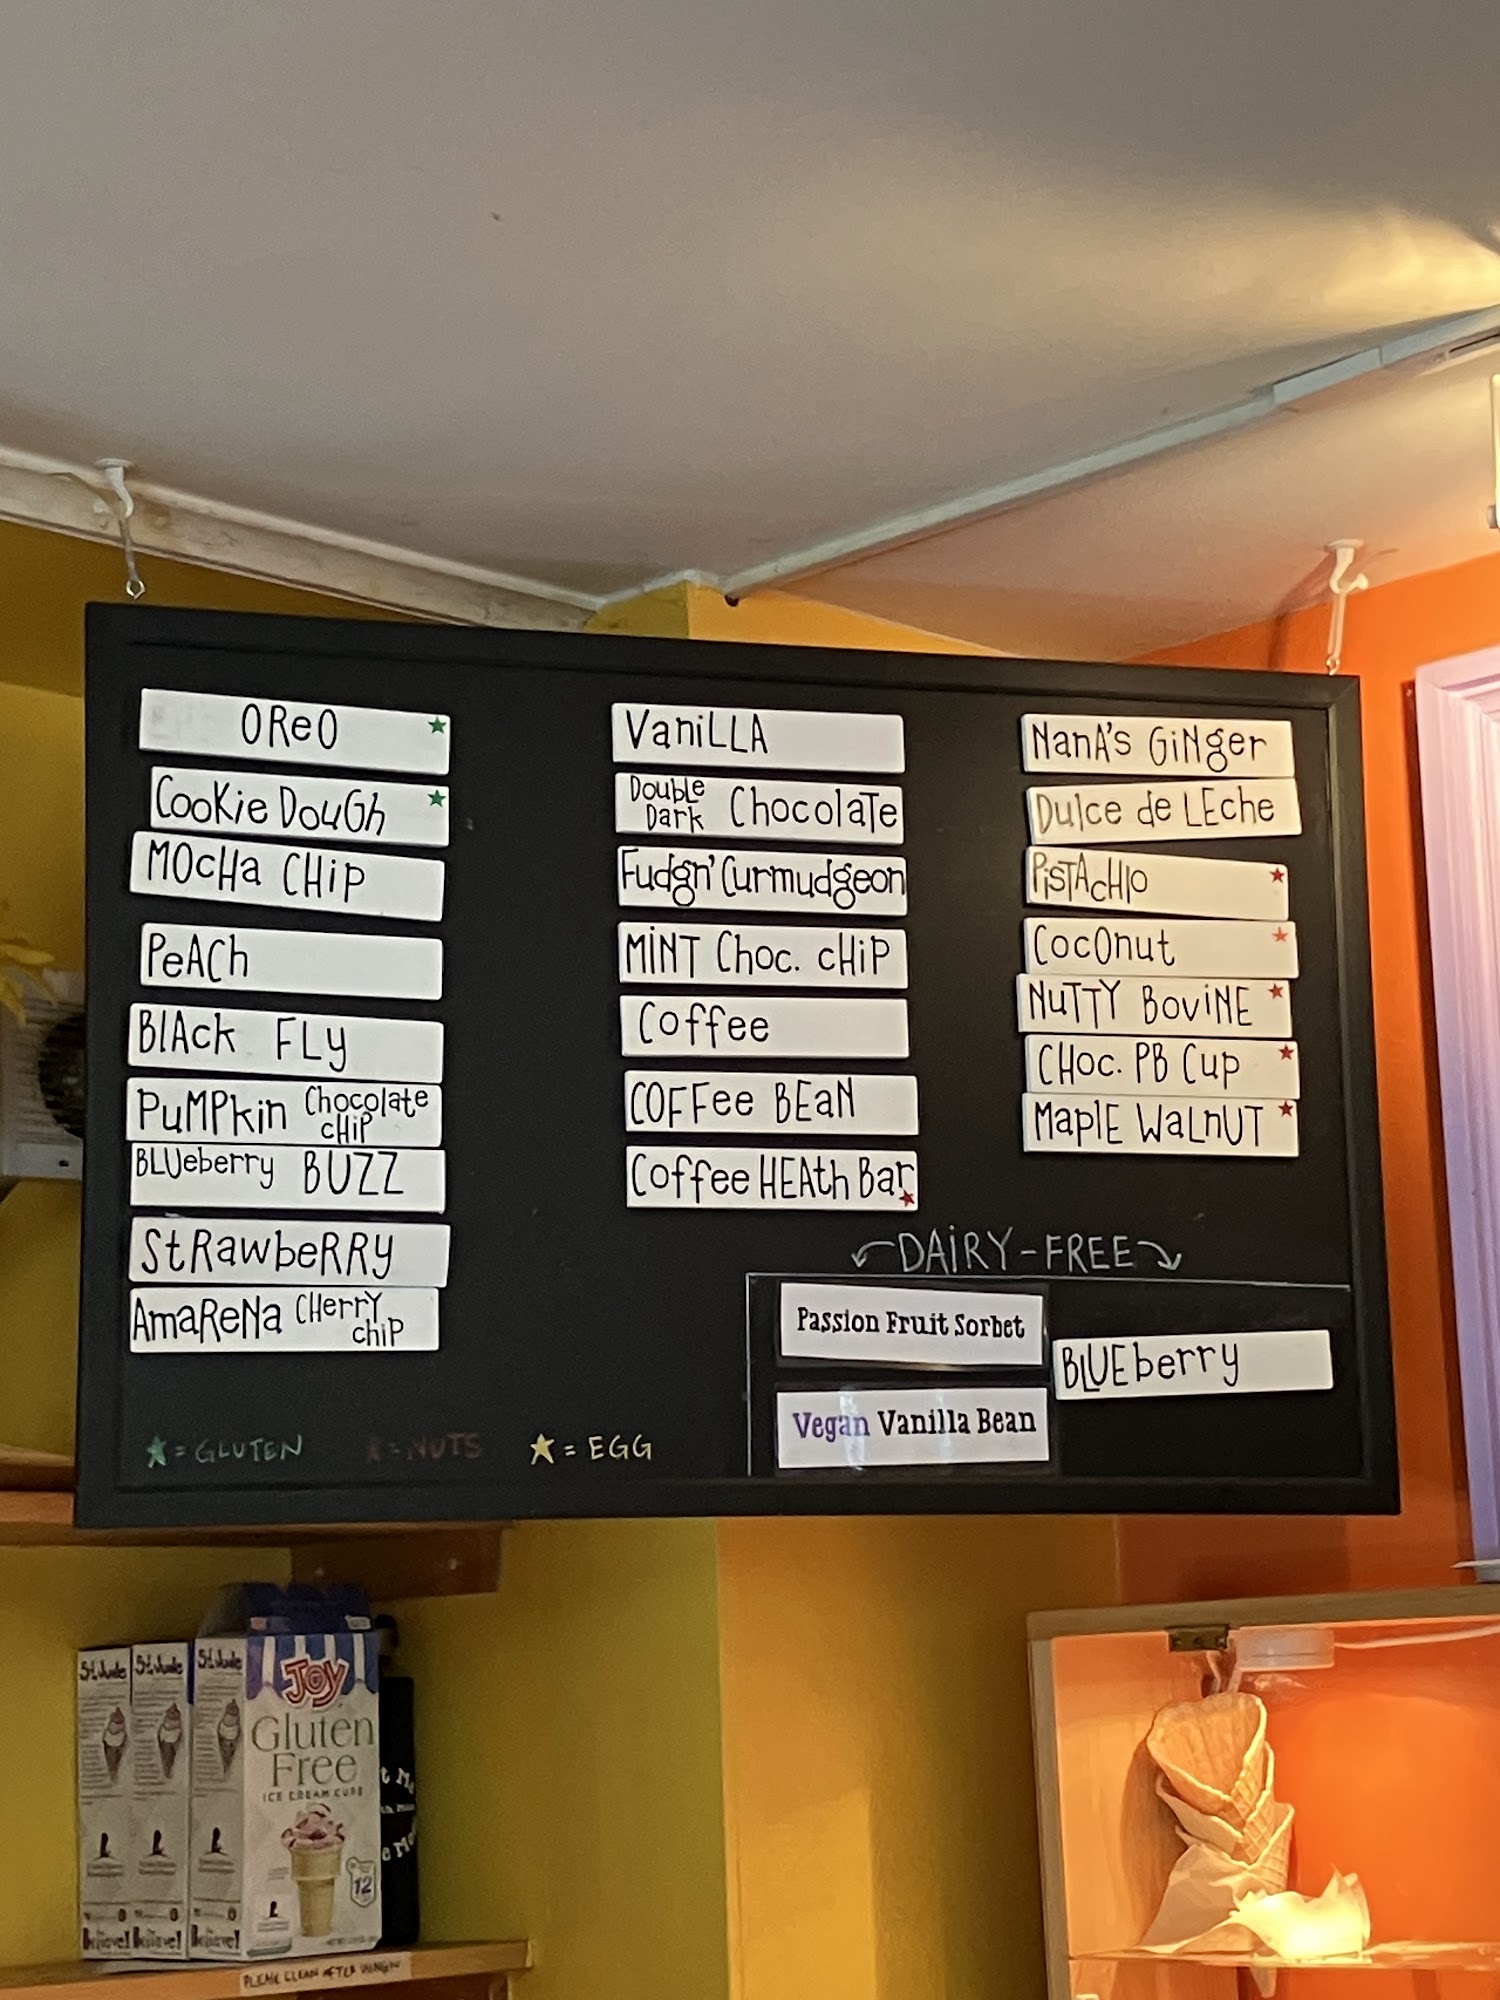 OReO ★
CooKie DouGh ★
MOcHa CHiP
PeACh
BlAck FLy
PuMPkin Chocolate cHiP
BLUeberry BUZZ
StRawbeRRy
AmaReNa CHerrY chiP
VaniLLA
Double Dark ChocolaTe
Fudgn' Curmudgeon
MiNT Choc. cHiP
Coffee
COFFee BEaN
Coffee HEAth Bar ★
NanA's GiNger
Dulce de LEche
PiSTAcHIo ★
CocOnut ★
NuTTY BoviNE ★
CHoc. PB Cup ★
MaplE WaLnUT ★
DAiRY-FREE
Passion Fruit Sorbet
BLUEberry
Vegan Vanilla Bean
★ = GLUTEN
★ = NUTS
★ = EGG
St. Jude
St. Jude
St. Jude
JOY
Gluten
Free
ICE CREAM CUPS
12
Believe!
Believe!
Believe!
PLEASE CLEAN AFTER